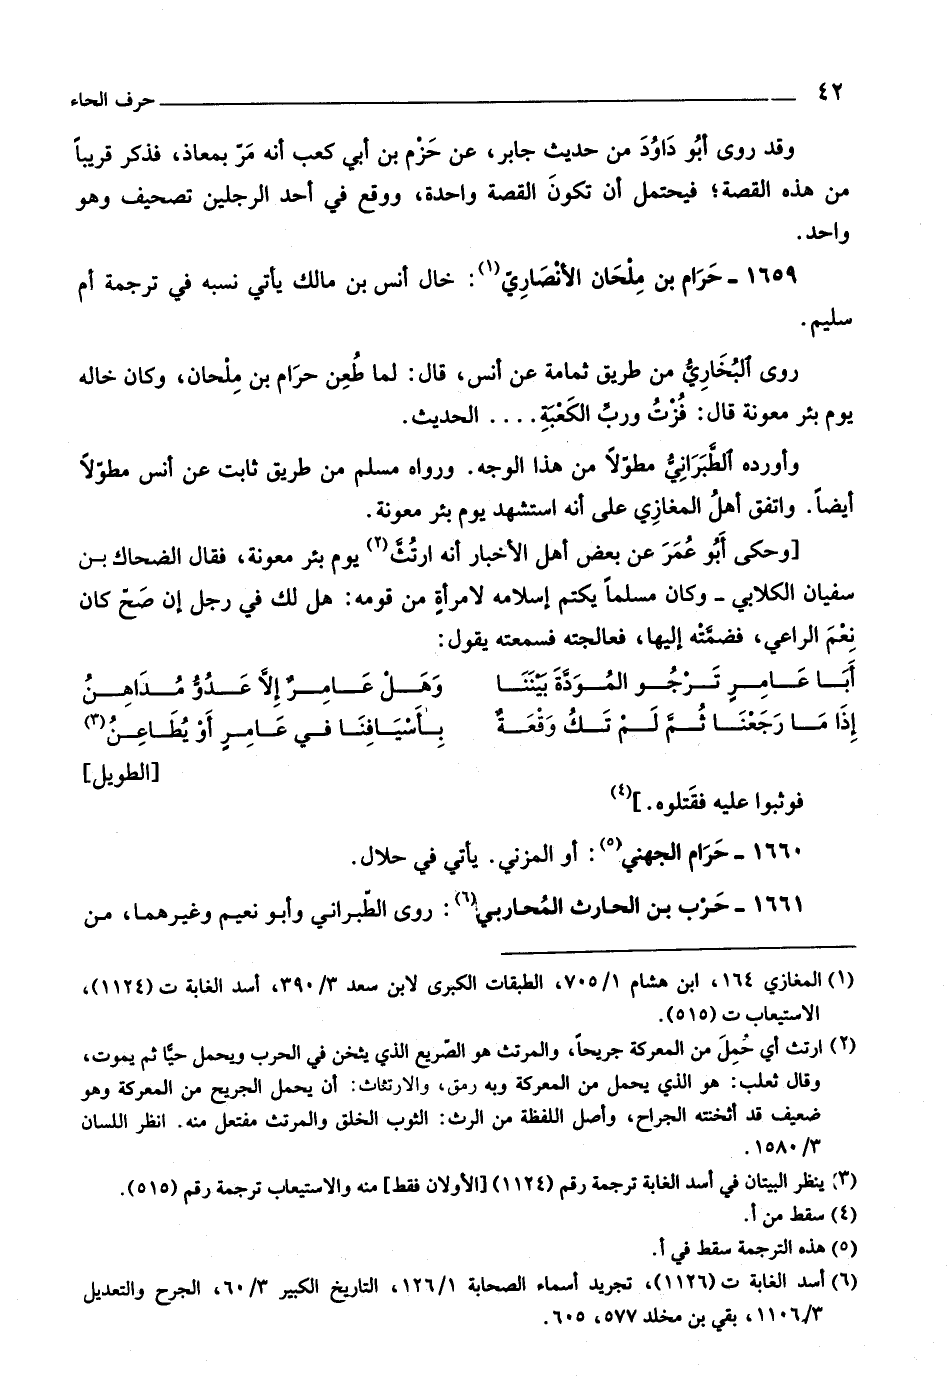 ٤٢ ــــــ حرف الحاء
وقد روى أَبُو دَاوُدَ من حديث جابر، عن حَزْم بن أبي كعب أنه مَرّ بمعاذ، فذكر قريباً
من هذه القصة؛ فيحتمل أن تكونَ القصة واحدة، ووقع في أحد الرجلين تصحيف وهو
واحد.
١٦٥٩ ـ حَرَام بن مِلْحَان الأنْصَارِيّ(١): خال أنس بن مالك يأتي نسبه في ترجمة أم
سليم.
روى ٱلبُخَارِيُّ من طريق ثمامة عن أنس، قال: لما طُعِن حرَام بن مِلْحان، وكان خاله
يوم بئر معونة قال: فُزْتُ وربِّ الكَعْبَةِ.... الحديث.
وأورده ٱلطَّبَرَانِيُّ مطوّلاً من هذا الوجه. ورواه مسلم من طريق ثابت عن أنس مطوّلاً
أيضاً. واتفق أهلُ المغازِي على أنه استشهد يوم بئر معونة.
[وحكى أَبُو عُمَرَ عن بعض أهل الأخبار أنه ارتُثَّ(٢) يوم بئر معونة، فقال الضحاك بن
سفيان الكلابي ـ وكان مسلماً يكتم إسلامه لامرأةٍ من قومه: هل لك في رجل إن صَحّ كان
نِعْمَ الراعي، فضمَّتْه إليها، فعالجته فسمعته يقول:
أَبَا عَامِرٍ تَرْجُو المُوَدَّةَ بَيْنَنَا وَهَلْ عَامِرٌ إِلاَّ عَدُوٌّ مُدَاهِنُ
إِذَا مَا رَجَعْنَا ثُمَّ لَمْ تَكُ وَقْعَةٌ بِأَسْيَافِنَا فِي عَامِرٍ أَوْ يُطَاعِنُ(٣)
[الطويل]
فوثبوا عليه فقَتلوه.](٤)
١٦٦٠ ـ حَرَام الجهني(٥): أو المزني. يأتي في حلال.
١٦٦١ ـ حَرْب بن الحارث المُحاربي(٦): روى الطّبراني وأبو نعيم وغيرهما، من
(١) المغازي ١٦٤، ابن هشام ٧٠٥/١، الطبقات الكبرى لابن سعد ٣٩٠/٣، أسد الغابة ت (١١٢٤)،
الاستيعاب ت (٥١٥).
(٢) ارتث أي حُمِلَ من المعركة جريحاً، والمرتث هو الصّريع الذي يثخن في الحرب ويحمل حيًّا ثم يموت،
وقال ثعلب: هو الذي يحمل من المعركة وبه رمق، والارتثاث: أن يحمل الجريح من المعركة وهو
ضعيف قد أثخنته الجراح، وأصل اللفظة من الرث: الثوب الخلق والمرتث مفتعل منه. انظر اللسان
١٥٨٠/٣.
(٣) ينظر البيتان في أسد الغابة ترجمة رقم (١١٢٤) [الأولان فقط] منه والاستيعاب ترجمة رقم (٥١٥).
(٤) سقط من أ.
(٥) هذه الترجمة سقط في أ.
(٦) أسد الغابة ت (١١٢٦)، تجريد أسماء الصحابة ١٢٦/١، التاريخ الكبير ٦٠/٣، الجرح والتعديل
١١٠٦/٣، بقي بن مخلد ٥٧٧، ٦٠٥.